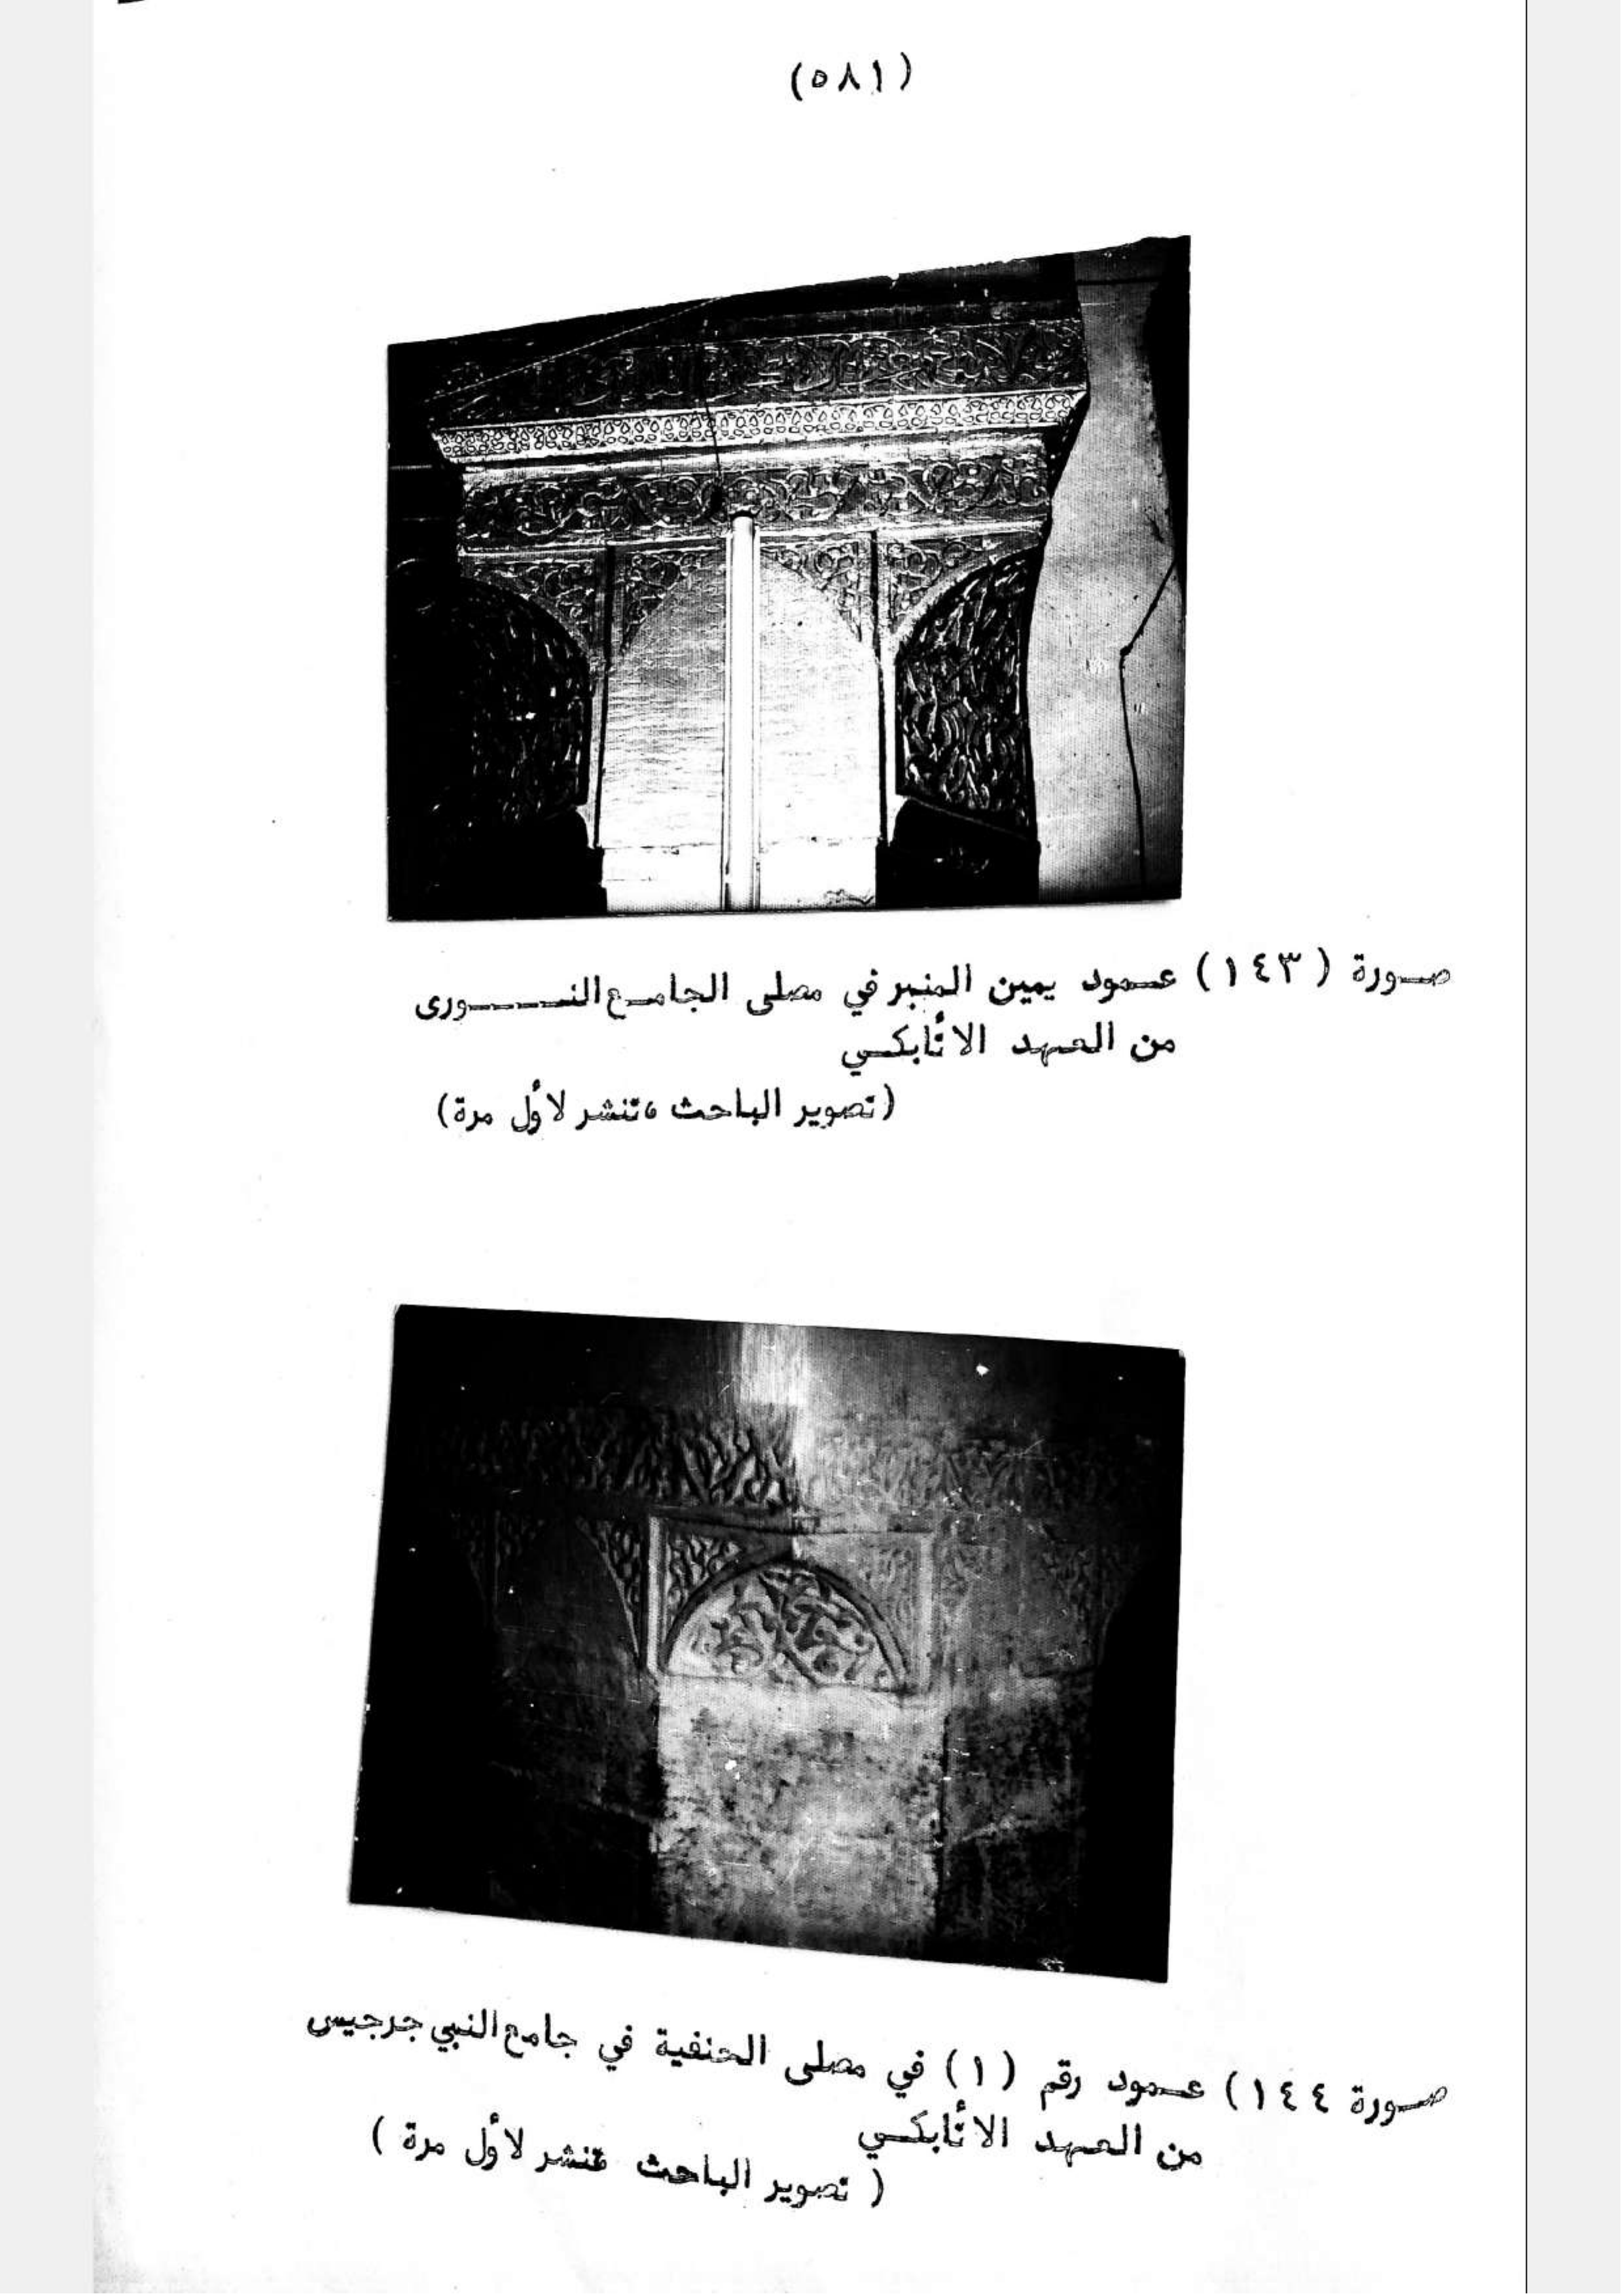 (٥٨١)
صورة (١٤٣) عمود يمين المنبر في مصلى الجامع النورى
من العهد الاتأبكي
(تصوير الباحث، تنشر لأول مرة)
صورة ١٤٤) عمود رقم (١) في مصلى الحنفية في جامع النبي جرجيس
من العهد الاتأبكي
(تصوير الباحث تنشر لأول مرة)